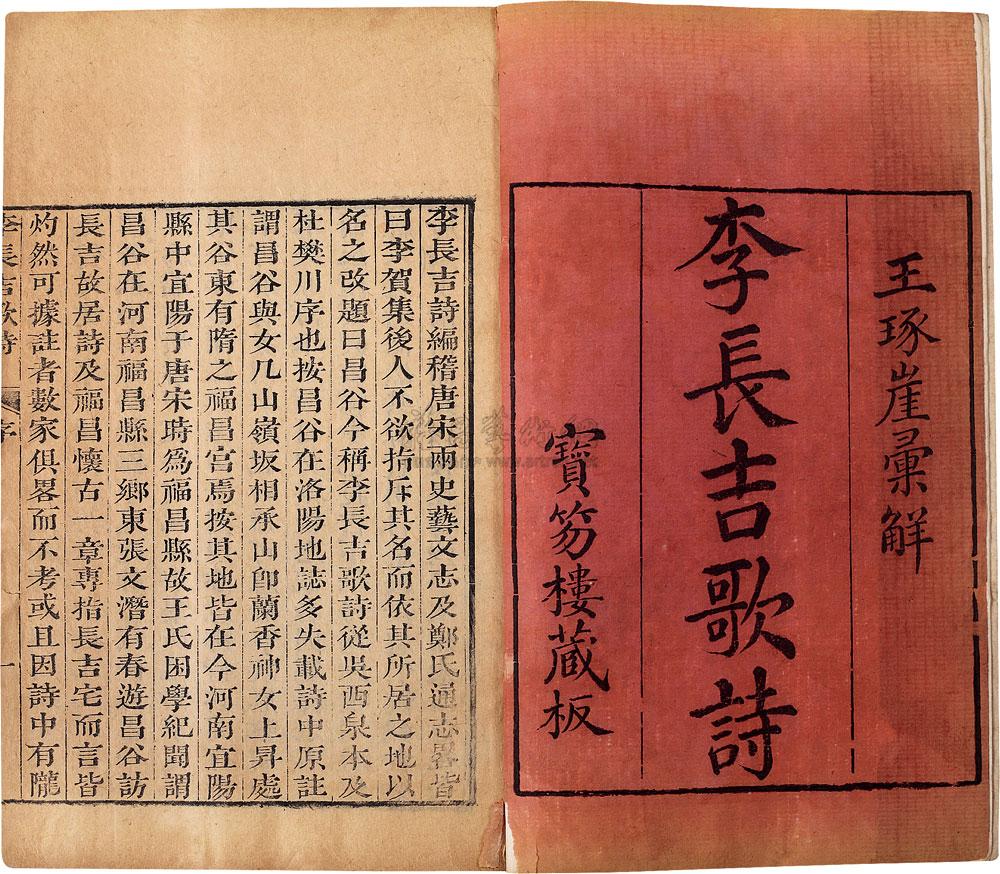 王琢崖彙解
李長吉歌詩
寶笏樓藏板
李長吉詩編稽唐宋兩史藝文志及鄭氏通志畧皆
曰李賀集後人不欲指斥其名而依其所居之地以
名之改題曰昌谷今稱李長吉歌詩從吳西泉本及
杜樊川序也按昌谷在洛陽地誌多失載詩中原註
謂昌谷與女几山嶺坂相承山卽蘭香神女上昇處
其谷東有隋之福昌宮焉按其地皆在今河南宜陽
縣中宜陽于唐宋時爲福昌縣故王氏困學紀聞謂
昌谷在河南福昌縣三鄉東張文潛有春遊昌谷訪
長吉故居詩及福昌懷古一章專指長吉宅而言皆
灼然可據註者數家俱畧而不考或且因詩中有隴
李長吉歌詩 序 一